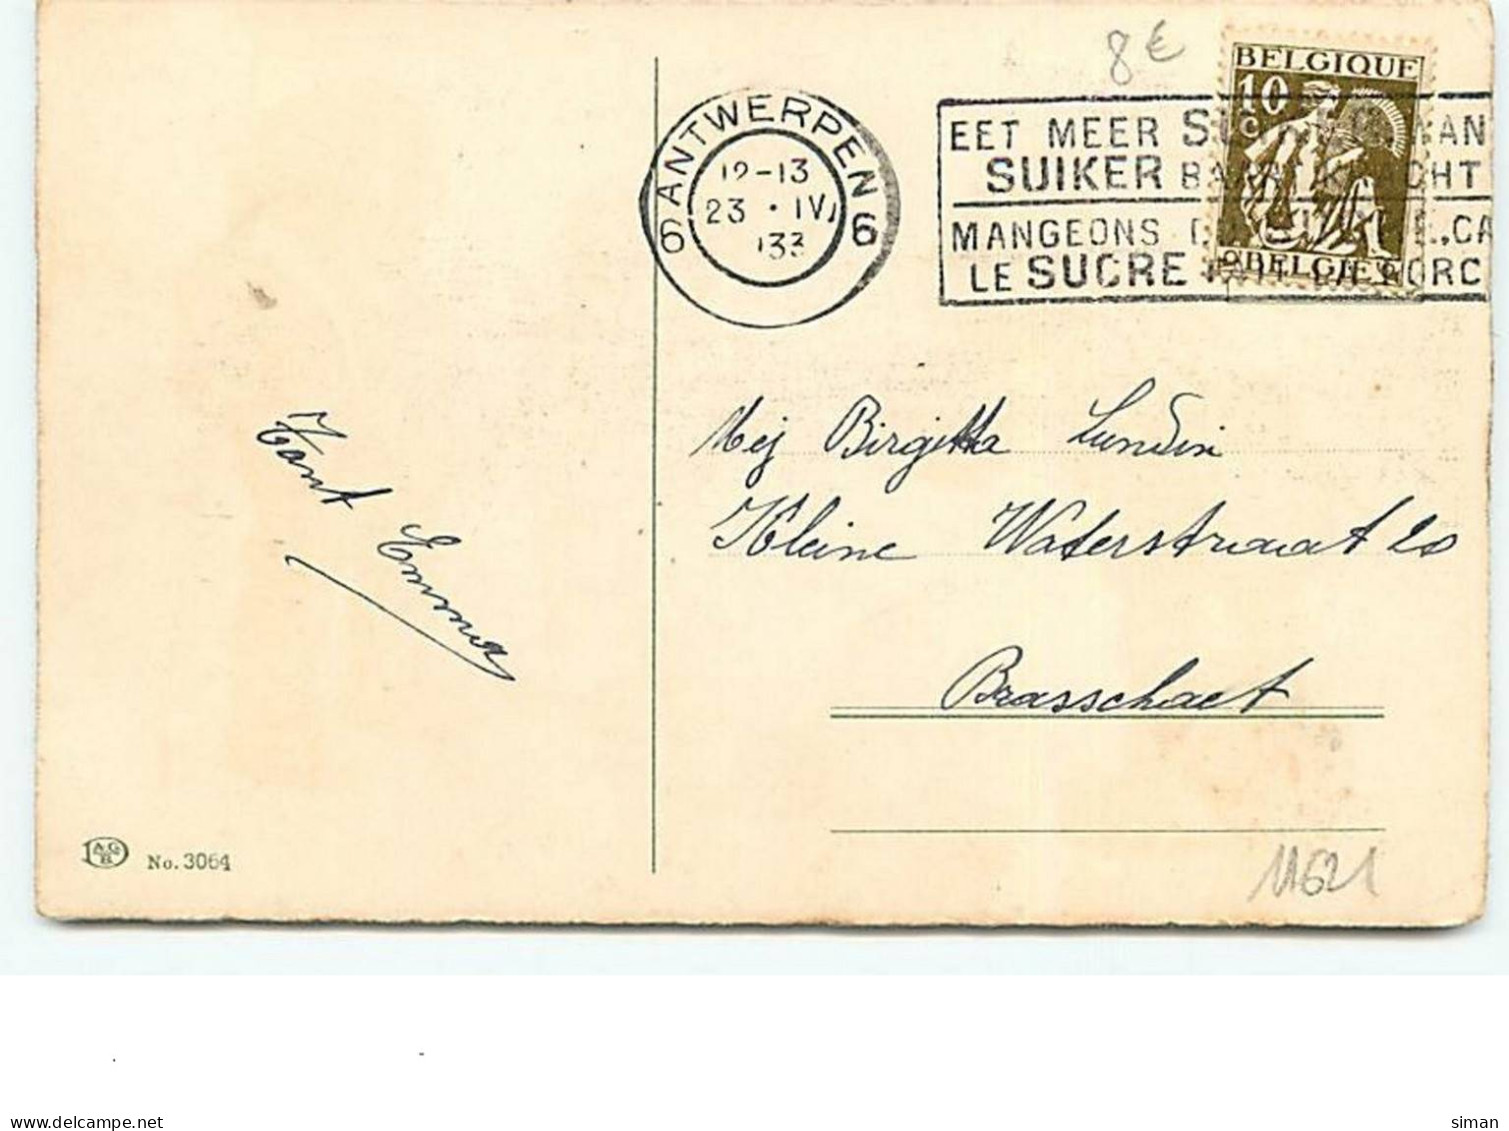 8 €
BELGIQUE
10
C
BELGIË
ANTWERPEN
6 6
12-13
23 · IV
33
EET MEER
SUIKER
MANGEONS
LE SUCRE
Tant Emma
Mej Birgitta Lundin
Kleine Waterstraat 20
Brasschaet
A.G.
B.
No. 3064
11621
www.delcampe.net
siman